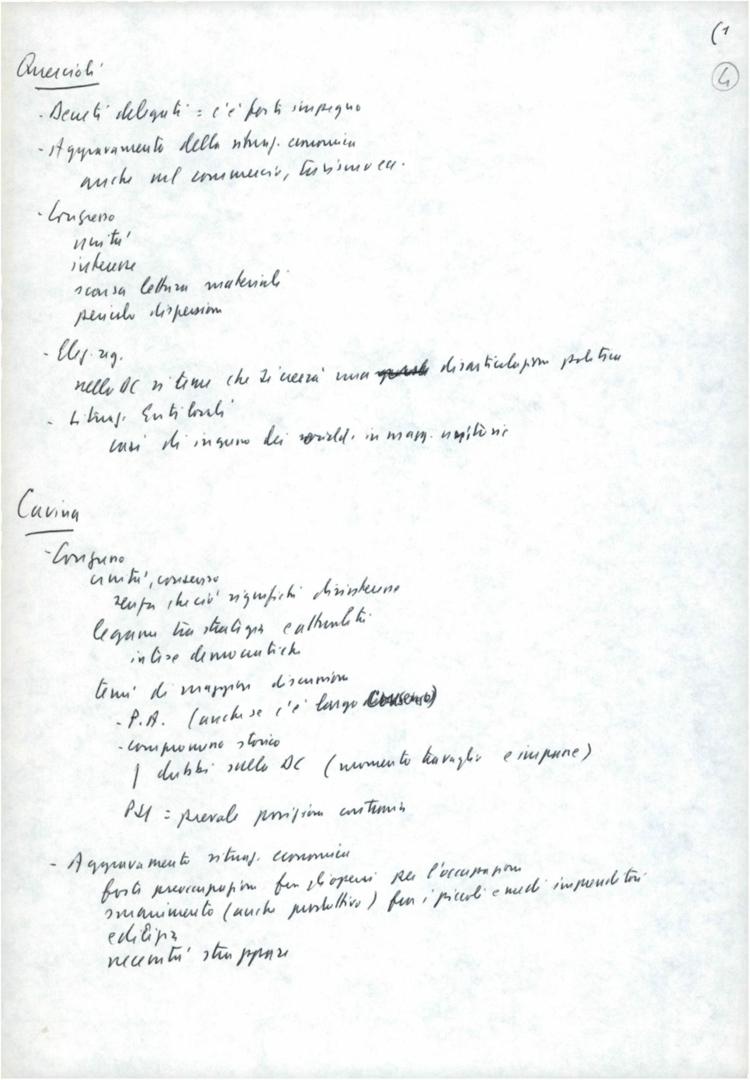 (1
4
Quercioli
- Decreti delegati = c'è forte impegno
- Aggravamento della situaz. economica
anche nel commercio, turismo ecc.
- Congresso
unità
interesse
scarsa lettura materiali
pericolo dispersione
- Elez. reg.
nella DC si teme che si creerà una disarticolazione politica
- Situaz. Enti locali
casi di ingresso dei in magg. unitarie
Cavina
- Congresso
unità, consenso
senza che ciò significhi disinteresse
legame tra strategia e attualità
intese democratiche
temi di maggior discussione
- P.A. (anche se c'è largo consenso)
- compromesso storico
dubbi sulla DC (momento travaglio e impasse)
PSI = prevale posizione
- Aggravamento situaz. economica
forte preoccupazione fra gli operai per l'occupazione
smarrimento (anche produttivo) fra i piccoli e medi imprenditori
edilizia
necessità strappare